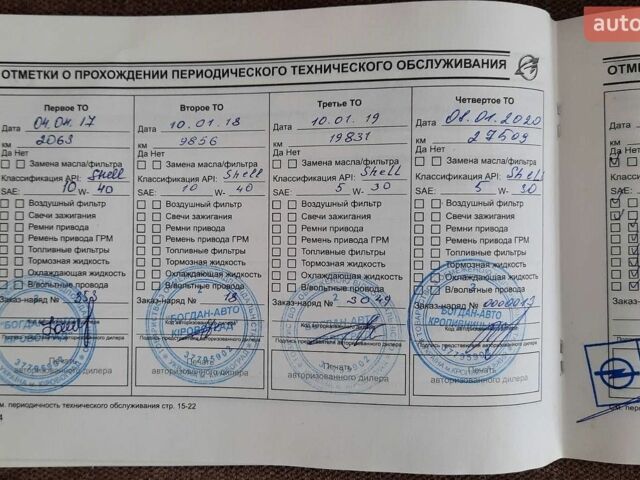 auto
ОТМЕТКИ О ПРОХОЖДЕНИИ ПЕРИОДИЧЕСКОГО ТЕХНИЧЕСКОГО ОБСЛУЖИВАНИЯ
Первое ТО
Дата 04.04.17
км 2063
Да Нет
Замена масла/фильтра
Классификация API: Shell
SAE: 10 W- 40
Воздушный фильтр
Свечи зажигания
Ремни привода
Ремень привода ГРМ
Топливные фильтры
Тормозная жидкость
Охлаждающая жидкость
В/вольтные провода
Заказ-наряд № 253
БОГДАН-АВТО
Печать
авторизованного дилера
Второе ТО
Дата 10.01.18
км 9856
Да Нет
Замена масла/фильтра
Классификация API: Shell
SAE: 10 W- 40
Воздушный фильтр
Свечи зажигания
Ремни привода
Ремень привода ГРМ
Топливные фильтры
Тормозная жидкость
Охлаждающая жидкость
В/вольтные провода
Заказ-наряд № 18
БОГДАН-АВТО
37795902
Печать
авторизованного дилера
Третье ТО
Дата 10.01.19
км 19831
Да Нет
Замена масла/фильтра
Классификация API: Shell
SAE: 5 W- 30
Воздушный фильтр
Свечи зажигания
Ремни привода
Ремень привода ГРМ
Топливные фильтры
Тормозная жидкость
Охлаждающая жидкость
В/вольтные провода
Заказ-наряд № 3049
Код авторизованного дилера
Подпись представителя авторизованного дилера
Печать
авторизованного дилера
Четвертое ТО
Дата 08.01.2020
км 27509
Да Нет
Замена масла/фильтра
Классификация API: Shell
SAE: 5 W- 30
Воздушный фильтр
Свечи зажигания
Ремни привода
Ремень привода ГРМ
Топливные фильтры
Тормозная жидкость
Охлаждающая жидкость
В/вольтные провода
Заказ-наряд №
БОГДАН-АВТО
Печать
авторизованного дилера
периодичность технического обслуживания стр. 15-22